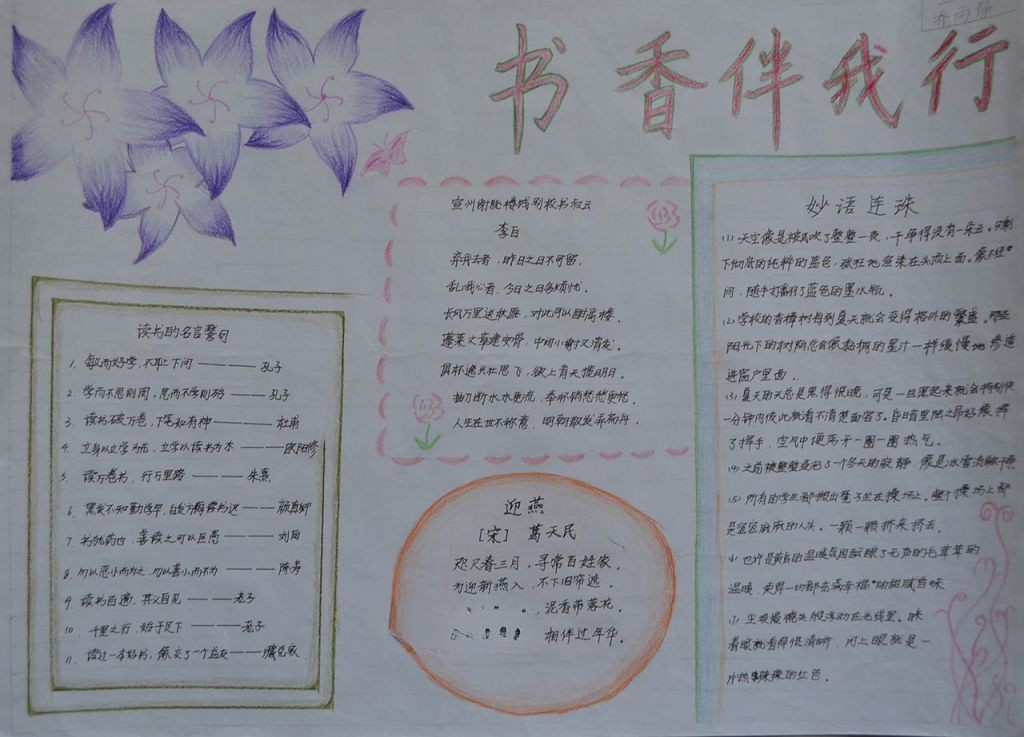 乔雨静
书香伴我行
读书的名言警句
1. 敏而好学，不耻下问 ——— 孔子
2. 学而不思则罔，思而不学则殆 —— 孔子
3. 读书破万卷，下笔如有神 ——— 杜甫
4. 立身以立学为先，立学以读书为本 —— 欧阳修
5. 读万卷书，行万里路 ——— 朱熹
6. 黑发不知勤学早，白首方悔读书迟 —— 颜真卿
7. 书犹药也，善读之可以医愚 —— 刘向
8. 勿以恶小而为之，勿以善小而不为 —— 陈寿
9. 读书百遍，其义自见 —— 老子
10. 千里之行，始于足下 —— 老子
11. 读过一本好书，像交了一个益友 —— 臧克家
宣州谢朓楼饯别校书叔云
李白
弃我去者，昨日之日不可留，
乱我心者，今日之日多烦忧。
长风万里送秋雁，对此可以酣高楼。
蓬莱文章建安骨，中间小谢又清发。
俱怀逸兴壮思飞，欲上青天揽明月。
抽刀断水水更流，举杯销愁愁更愁。
人生在世不称意，明朝散发弄扁舟。
迎燕
[宋] 葛天民
咫尺春三月，寻常百姓家。
为迎新燕入，不下旧帘遮。
泥香带落花。
相伴过年华。
妙语连珠
(1) 天空像是被风吹了整整一夜，干净得没有一朵云。只剩
下彻底的纯粹的蓝色，张狂地渲染在头顶上面。像不经
间，随手打翻了蓝色的墨水瓶。
(2) 学校的香樟树每到夏天就会变得格外的繁盛。那些
阳光下的树荫总会像黏稠的墨汁一样缓慢地渗透
进窗户里面．
(3) 夏天的天总是黑得很晚，可是一旦黑起来就会特别快
一分钟内彼此就看不清楚面容了。
了挥手，空气中便荡开一圈一圈热气。
(4) 之前被整整浸泡了一个冬天的寂静，像是冰雪消融
(5) 所有的学生都搬出凳子坐在操场上。整个操场上都
是密密麻麻的人头。一颗一颗挤来挤去。
温暖，使得一切都充满幸福的甜腻香味
着眼就看得很清晰，闭上眼就是一
片热辣辣的红色。